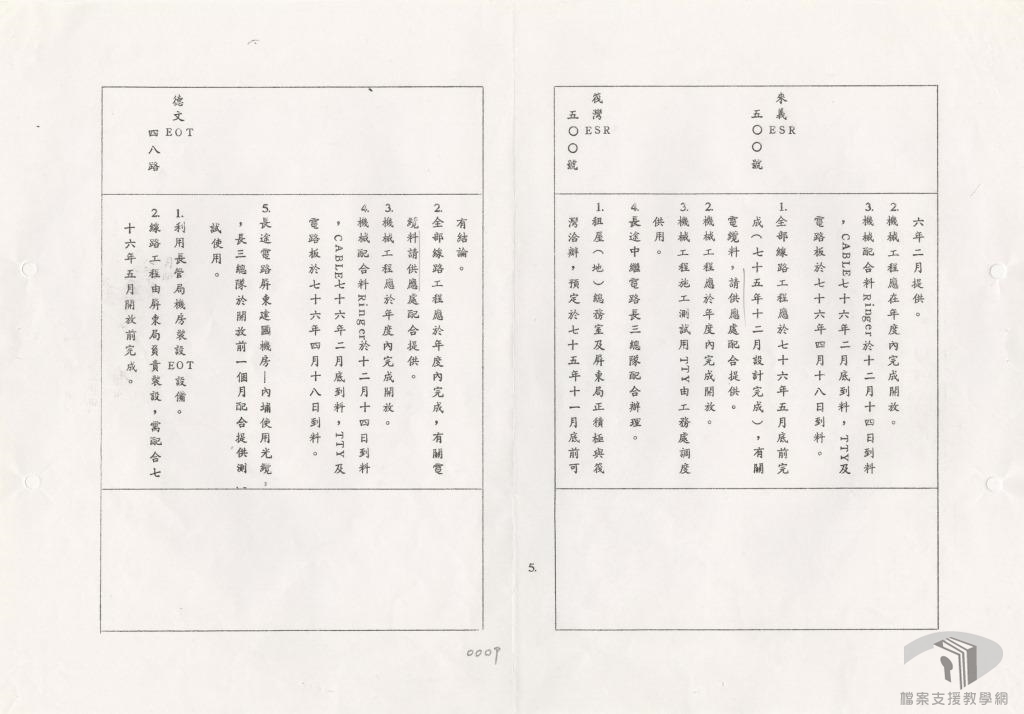 六年二月提供。
2.機械工程應在年度內完成開放。
3.機械配合料Ringer於十二月十四日到料
，CABLE七十六年二月底到料，TTY及
電路板於七十六年四月十八日到料。
來義ESR
五〇〇號
1.全部線路工程應於七十六年五月底前完
成（七十五年十二月設計完成），有關
電纜料，請供應處配合提供。
2.機械工程應於年度內完成開放。
3.機械工程施工測試用TTY由工務處調度
供用。
4.長途中繼電路長三總隊配合辦理。
筏灣ESR
五〇〇號
1.租屋（地）總務室及屏東局正積極與筏
灣洽辦，預定於七十五年十一月底前可
有結論。
2.全部線路工程應於年度內完成，有關電
纜料請供應處配合提供。
3.機械工程應於年度內完成開放。
4.機械配合料Ringer於十二月十四日到料
，CABLE七十六年二月底到料，TTY及
電路板於七十六年四月十八日到料。
5.長途電路屏東建國機房—內埔使用光纜，
，長三總隊於開放前一個月配合提供測
試使用。
德文EOT
四八路
1.利用長管局機房裝設EOT設備。
2.線路工程由屏東局負責裝設，需配合七
十六年五月開放前完成。
5.
0009
檔案支援教學網